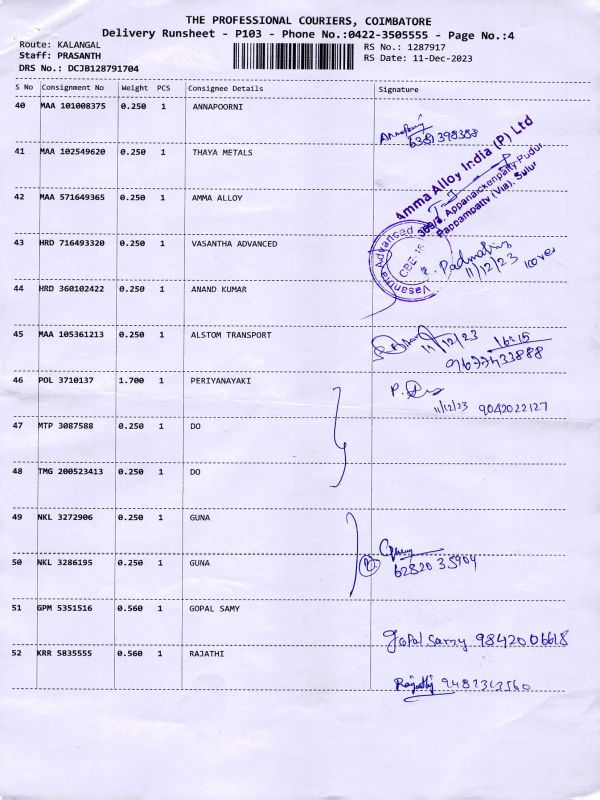 THE PROFESSIONAL COURIERS, COIMBATORE
Delivery Runsheet - P103 - Phone No.:0422-3505555 - Page No.:4
Route: KALANGAL RS No.: 1287917
Staff: PRASANTH RS Date: 11-Dec-2023
DRS No.: DCJB128791704
S No Consignment No Weight PCS Consignee Details Signature
40 MAA 101008375 0.250 1 ANNAPOORNI
6381398388
41 MAA 102549620 0.250 1 THAYA METALS
Amma Alloy India (P) Ltd
Appanaickenpatty Pudur
Pappampatty (Via), Sulur
42 MAA 571649365 0.250 1 AMMA ALLOY
43 HRD 716493320 0.250 1 VASANTHA ADVANCED
Vasantha Advanced
11/12/23
44 HRD 360102422 0.250 1 ANAND KUMAR
45 MAA 105361213 0.250 1 ALSTOM TRANSPORT
11/12/23 16:15
9677433888
46 POL 3710137 1.700 1 PERIYANAYAKI
11/12/23 9042022127
47 MTP 3087588 0.250 1 DO
48 TMG 200523413 0.250 1 DO
49 NKL 3272906 0.250 1 GUNA
50 NKL 3286195 0.250 1 GUNA
62820 35904
51 GPM 5351516 0.560 1 GOPAL SAMY
Gopal Samy 9842006618
52 KRR 5835555 0.560 1 RAJATHI
Rajathi